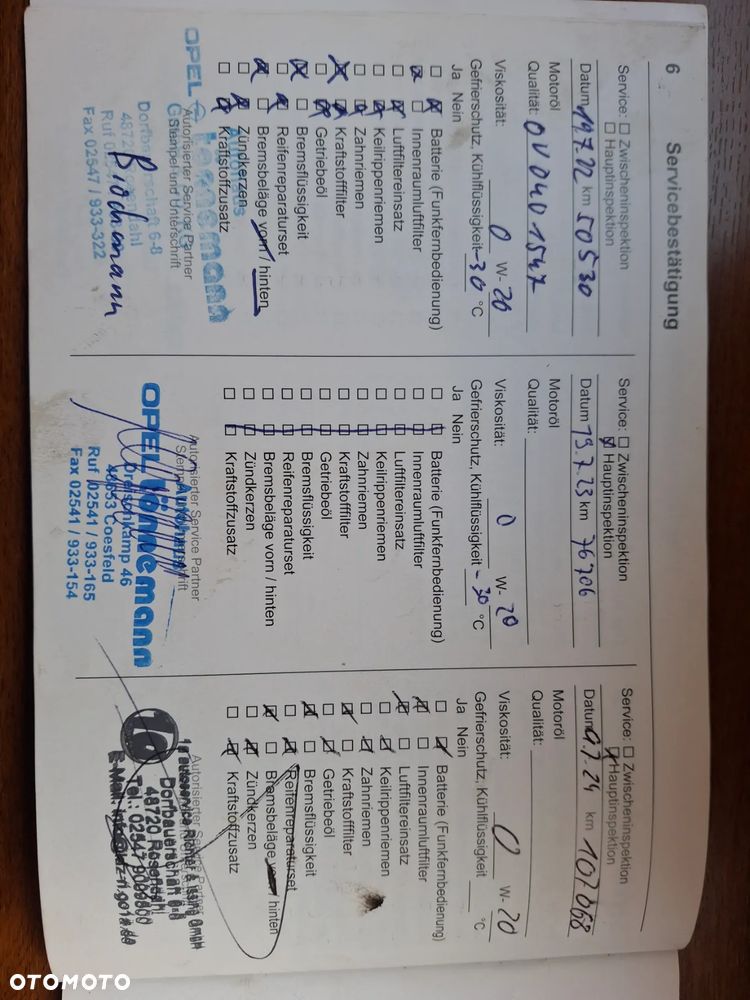 6
Servicebestätigung
Service: ☐ Zwischeninspektion
☐ Hauptinspektion
Datum 19.7.22 km 50530
Motoröl
Qualität: OV0401547
Viskosität: 0 W- 20
Gefrierschutz, Kühlflüssigkeit -30 °C
Ja Nein
☐ ☒ Batterie (Funkfernbedienung)
☒ ☐ Innenraumluftfilter
☐ ☒ Luftfiltereinsatz
☐ ☒ Keilrippenriemen
☐ ☒ Zahnriemen
☒ ☐ Kraftstofffilter
☐ ☒ Getriebeöl
☒ ☐ Bremsflüssigkeit
☐ ☒ Reifenreparaturset
☒ ☐ Bremsbeläge vorn / hinten
☐ ☒ Zündkerzen
☐ ☒ Kraftstoffzusatz
Autorisierter Service Partner
Stempel und Unterschrift
OPEL
Autohaus
Dorfbauerschaft 6-8
Fax 02547 / 933-322
Service: ☐ Zwischeninspektion
☒ Hauptinspektion
Datum 19.7.23 km 76706
Motoröl
Qualität:
Viskosität: 0 W- 20
Gefrierschutz, Kühlflüssigkeit -30 °C
Ja Nein
☐ ☐ Batterie (Funkfernbedienung)
☐ ☐ Innenraumluftfilter
☐ ☐ Luftfiltereinsatz
☐ ☐ Keilrippenriemen
☐ ☐ Zahnriemen
☐ ☐ Kraftstofffilter
☐ ☐ Getriebeöl
☐ ☐ Bremsflüssigkeit
☐ ☐ Reifenreparaturset
☐ ☐ Bremsbeläge vorn / hinten
☐ ☐ Zündkerzen
☐ ☐ Kraftstoffzusatz
Autorisierter Service Partner
Autohaus
OPEL Vönnemann
Dreischkamp 46
48653 Coesfeld
Ruf 02541 / 933-165
Fax 02541 / 933-154
Service: ☐ Zwischeninspektion
☒ Hauptinspektion
Datum 9.7.24 km 107068
Motoröl
Qualität:
Viskosität: 0 W- 20
Gefrierschutz, Kühlflüssigkeit °C
Ja Nein
☐ ☒ Batterie (Funkfernbedienung)
☒ ☐ Innenraumluftfilter
☒ ☐ Luftfiltereinsatz
☐ ☒ Keilrippenriemen
☐ ☒ Zahnriemen
☒ ☐ Kraftstofffilter
☐ ☒ Getriebeöl
☒ ☐ Bremsflüssigkeit
☐ ☒ Reifenreparaturset
☒ ☐ Bremsbeläge vorn / hinten
☐ ☒ Zündkerzen
☐ ☒ Kraftstoffzusatz
Autorisierter Service Partner
1a autoservice Richter & Issing GmbH
Dorfbauerschaft 6-8
48720 Rosendahl
OTOMOTO